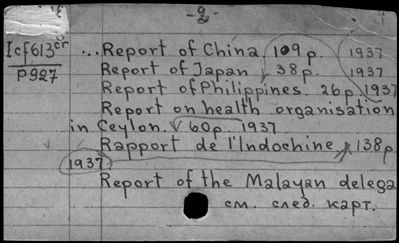 -2-
Icf613cr
P927
...Report of China 109 p. 1937
Report of Japan 38 p. 1937
Report of Philippines. 26 p 1937
Report on health organisation
in Ceylon. 60 p. 1937
Rapport de l'Indochine 138 p
1937
Report of the Malayan delega
см. след. карт.